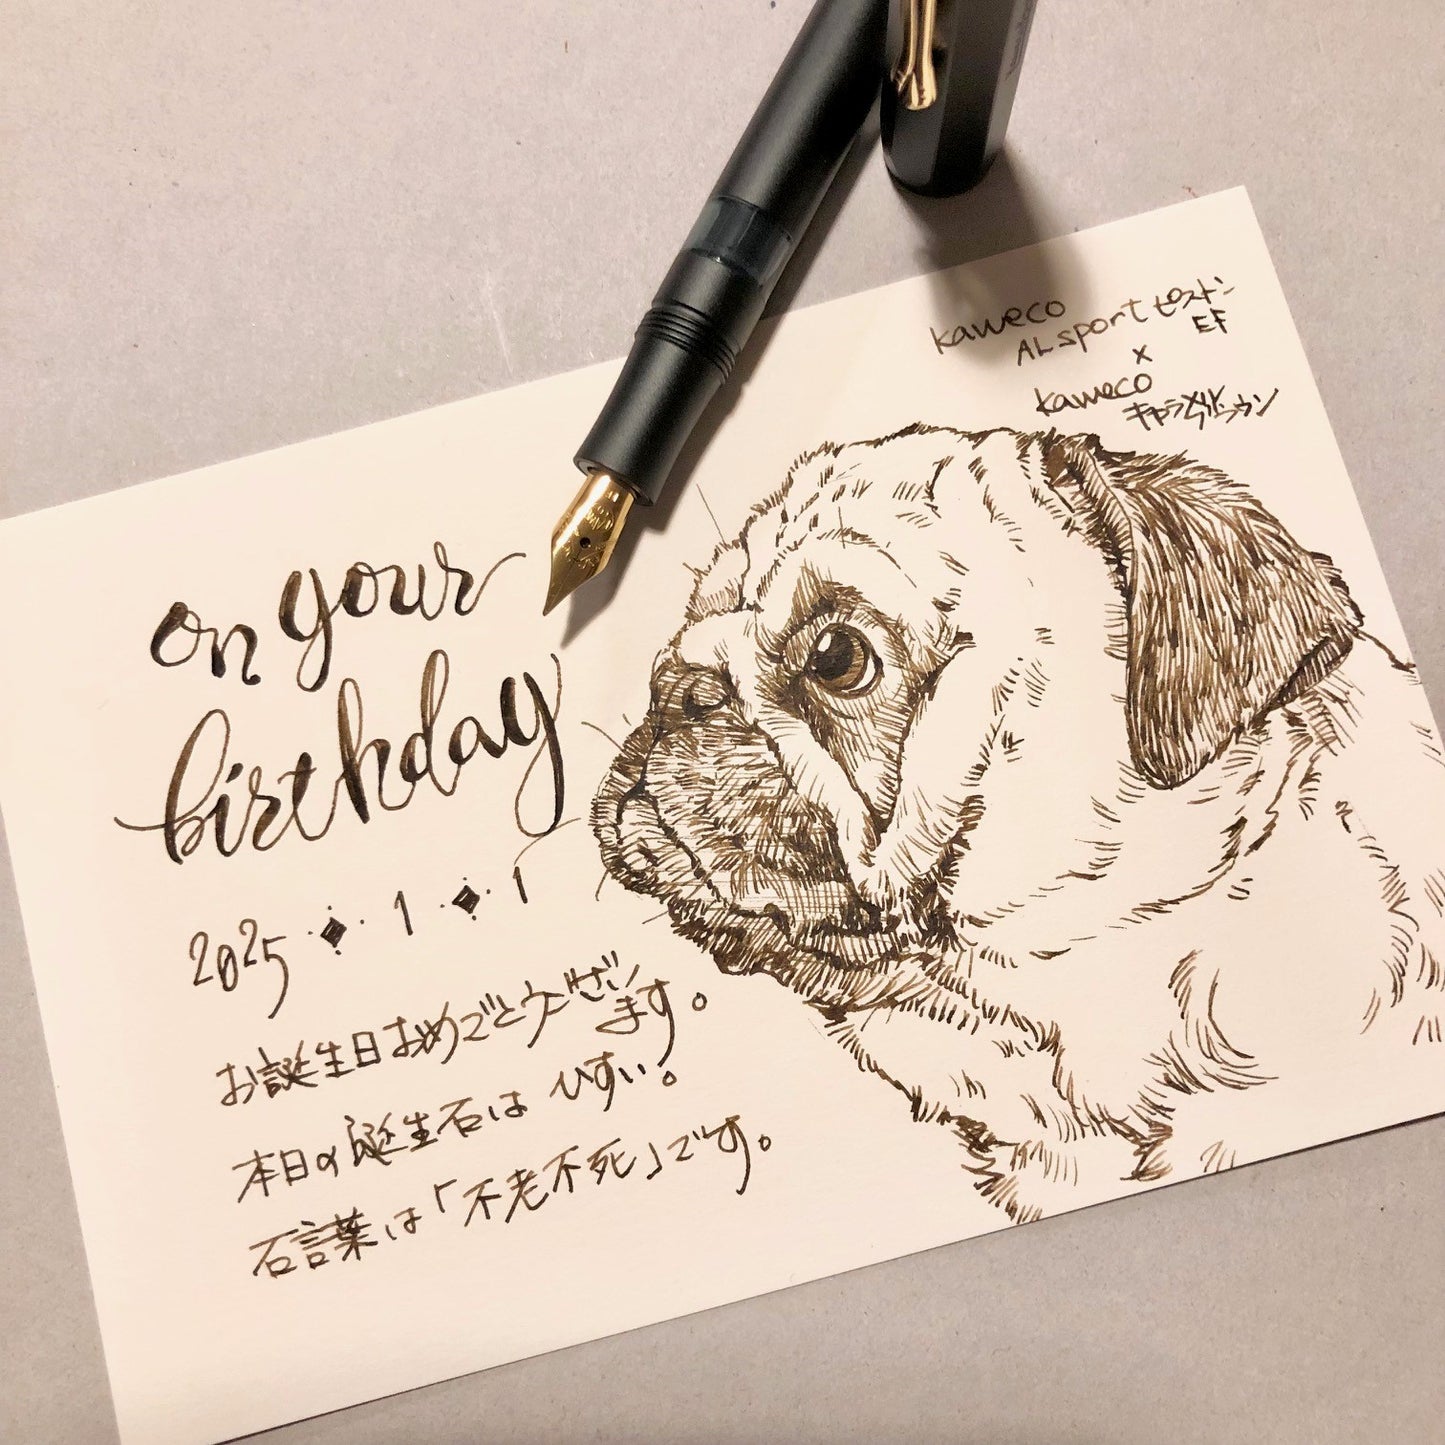 kaweco
AL sport ピストン
EF
×
kaweco
キャラメルブラウン
on your
birthday
2025・◆・1・◆・1
お誕生日おめでとうございます。
本日の誕生石は ひすい。
石言葉は「不老不死」です。